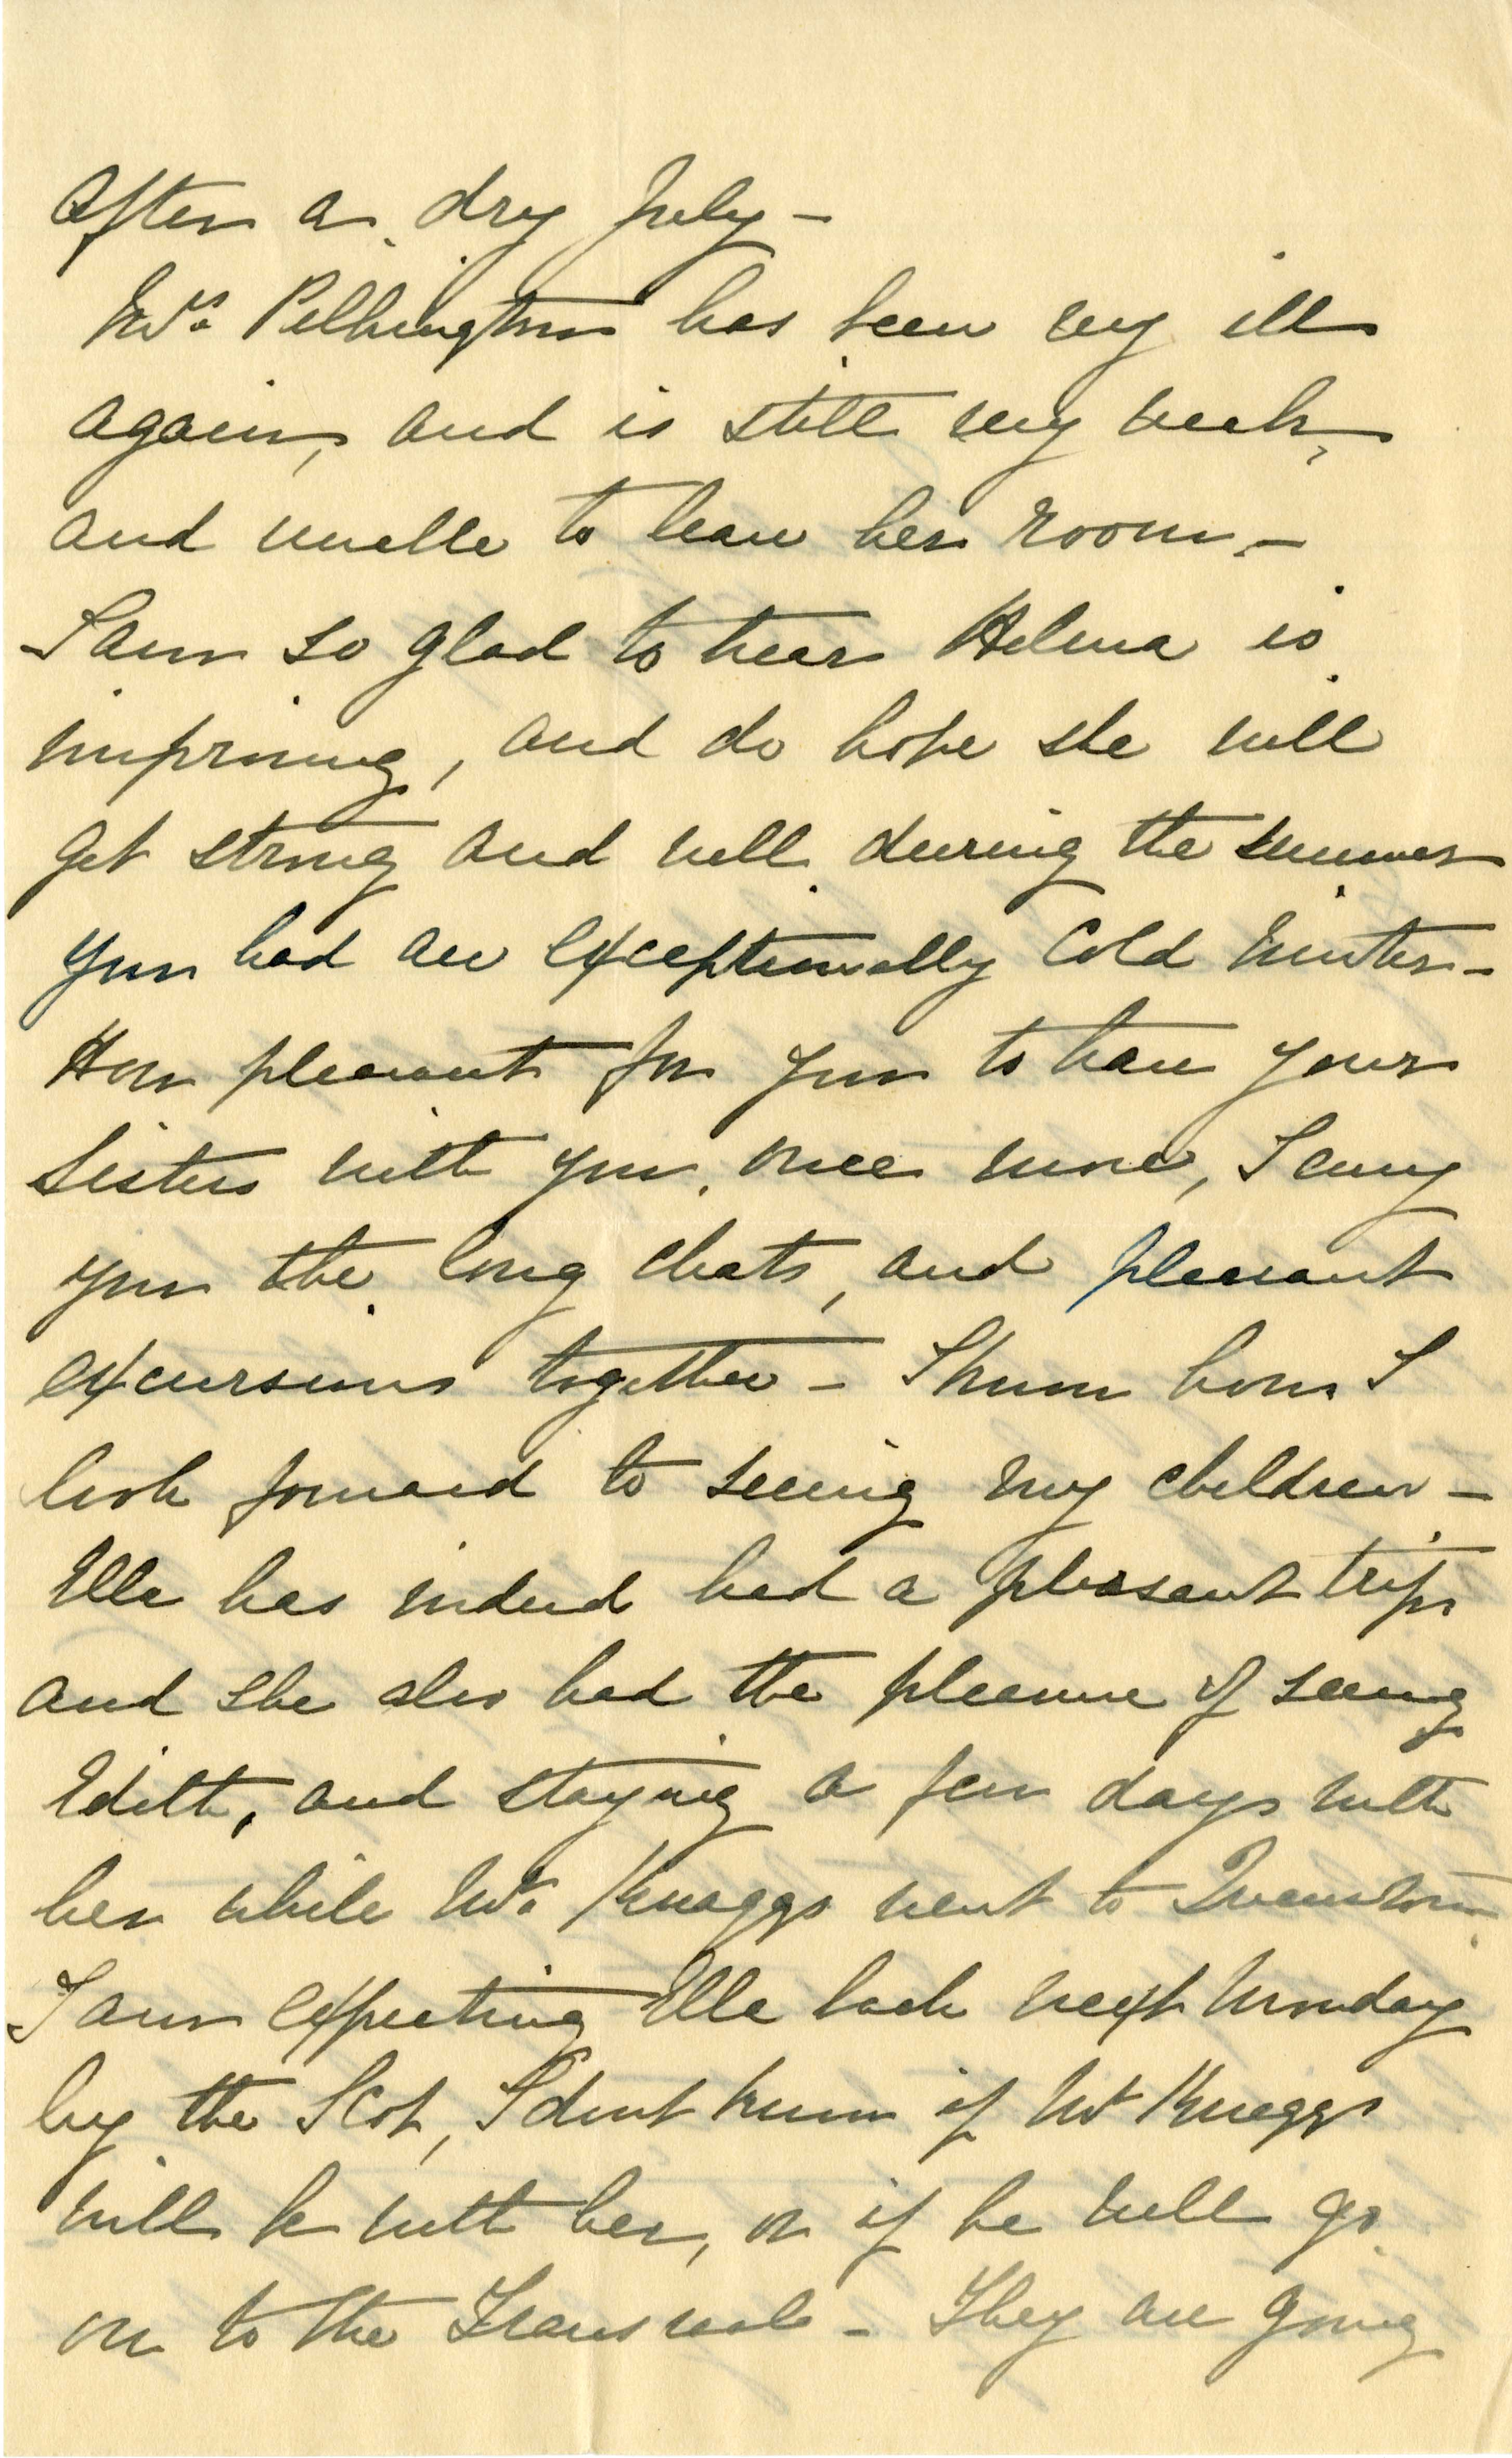 After a dry July -
Mrs. Pilkington has been very ill
again, and is still very weak,
and unable to leave her room. -
I am so glad to hear Helena is
improving, and do hope she will
get strong and well during the summer
you had an exceptionally cold winter -
How pleasant for you to have your
Sisters with you once more, I envy
you the long chats, and pleasant
excursions together - I know how I
look forward to seeing my children -
Elle has indeed had a pleasant trip
and she also had the pleasure of seeing
Edith, and staying a few days with
her while Mr. Knaggs went to Queenstown
I am expecting Elle back next Monday
by the Scot, I dont know if Mr Knaggs
will be with her, or if he will go
on to the Transvaal - They are going